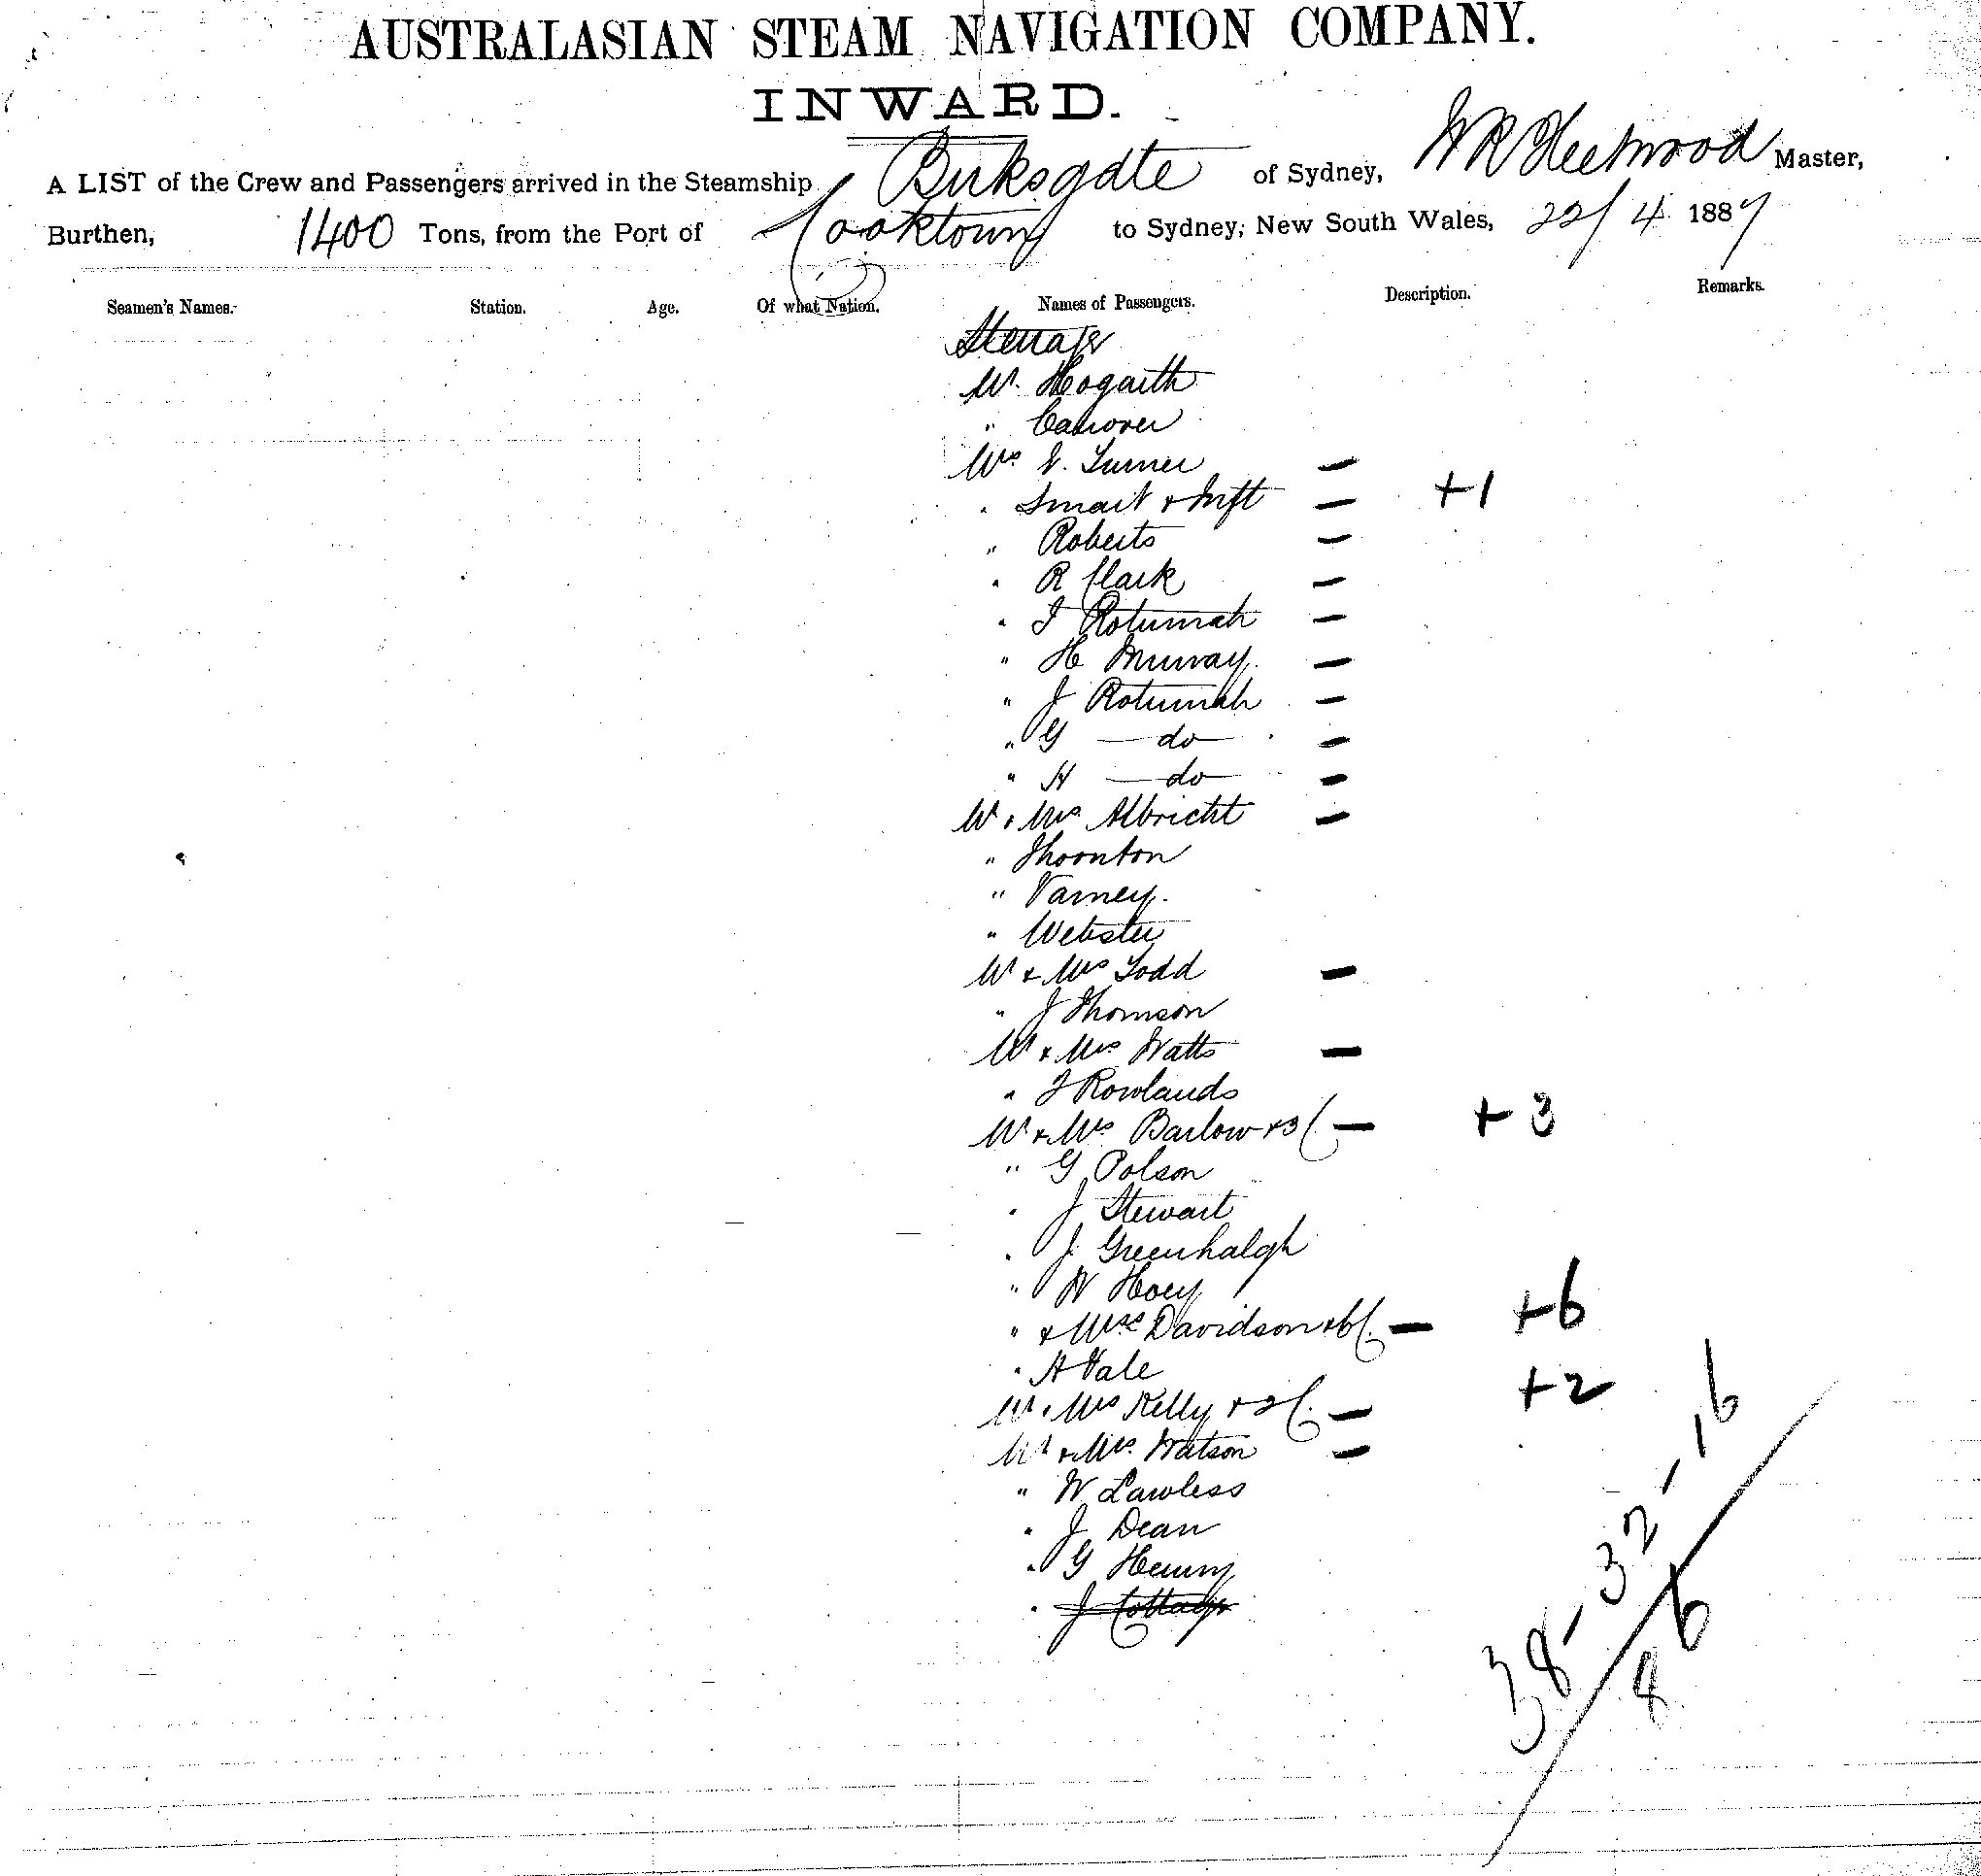 AUSTRALASIAN STEAM NAVIGATION COMPANY.
INWARD.
A LIST of the Crew and Passengers arrived in the Steamship Birksgate of Sydney, W R Fleetwood Master,
Burthen, 1400 Tons, from the Port of Cooktown to Sydney, New South Wales, 22/4 1887
Seamen's Names. Station. Age. Of what Nation. Names of Passengers. Description. Remarks.
Steerage
Mr. Hogarth
" Canover
Mrs J. Turner —
" Smart & Inft — +1
" Roberts —
" R Clark —
" J Rotumah —
" H Murray —
" J Rotumah —
" G — do —
" H — do —
Mr & Mrs Albricht —
" Thornton
" Varney.
" Webster
Mr & Mrs Todd —
" J Thomson
Mr & Mrs Watts —
" J Rowlands
Mr & Mrs Barlow & 3 C. — +3
" G Polson
" J Stewart
" J. Greenhalgh
" W Hoey
" & Mrs Davidson & 6 C. — +6
" A Vale
Mr & Mrs Kelly & 2 C. — +2
Mr & Mrs Watson —
" W Lawless
" J Dean
" G Henry
" J Cottage
38 - 32 - 16
86